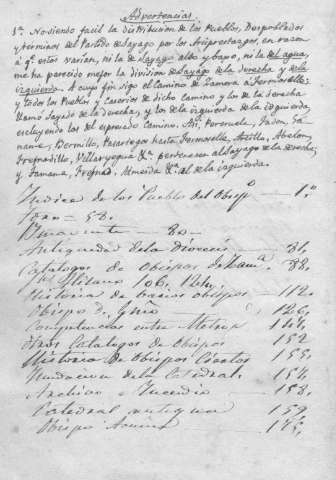 Advertencias.
1ª No siendo facil la distribucion de los Pueblos, Despoblados
y terminos del Partido de Sayago por los Arciprestazgos, en razon
á qe estos varian, ni la de Sayago alto y bajo, ni la del agua,
me ha parecido mejor la division de Sayago de la derecha y de la
izquierda. A cuyo fin sigo el camino de Zamora á Fermoselle:
y todos los Pueblos y Caserios de dicho Camino y los de la derecha
llamo Sayago de la derecha; y los de la izquierda de la izquierda,
escluyendo los del espresado Camino. Asi, Pereruela,
Bermillo, hasta Fermoselle, Abelon,
Fresnadillo, Villaryegua &ª pertenecen al Sayago de la derecha;
y Tamame, Almeida &ª al de la izquierda.
Indice de los Pueblos del Obispo — 1.º
Toro — 58.
Benavente — 80 —
Antiguedad de la Diocesi — 81.
Catalogos de Obispos de Zamª — 88.
106.
Historia de varios obispos — 112.
Obispo — 126.
Competencias entre Metrop — 144.
Otros Catalogos de Obispos 152
Historia de Obispos — 155.
Fundacion de la Catedral. 156.
Archivo é Incendio — 158.
Catedral antigua — 159.
Obispo